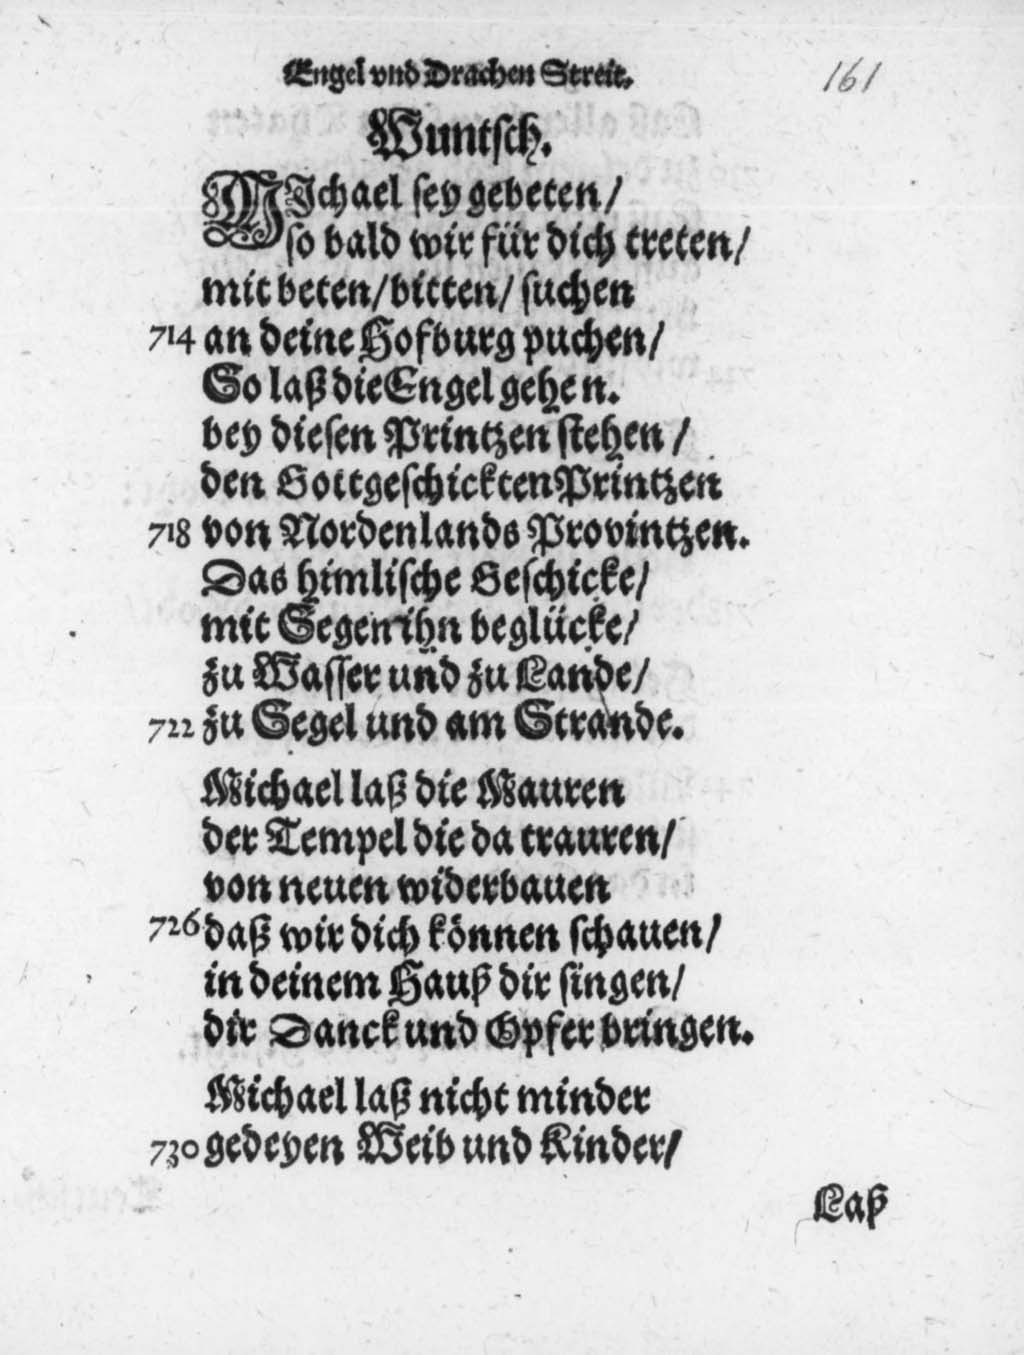 Engel vnd Drachen Streit. 161
Wuntsch.
MIchael sey gebeten/
so bald wir für dich treten/
mit beten/bitten/ suchen
714 an deine Hofburg puchen/
So laß die Engel gehen.
bey diesen Printzen stehen /
den Gottgeschickten Printzen
718 von Nordenlands Provintzen.
Das himlische Geschicke/
mit Segen ihn beglücke/
zu Wasser und zu Lande/
722 zu Segel und am Strande.
Michael laß die Mauren
der Tempel die da trauren/
von neuen widerbauen
726 daß wir dich können schauen/
in deinem Hauß dir singen/
dir Danck und Opfer bringen.
Michael laß nicht minder
730 gedeyen Weib und Kinder/
Laß